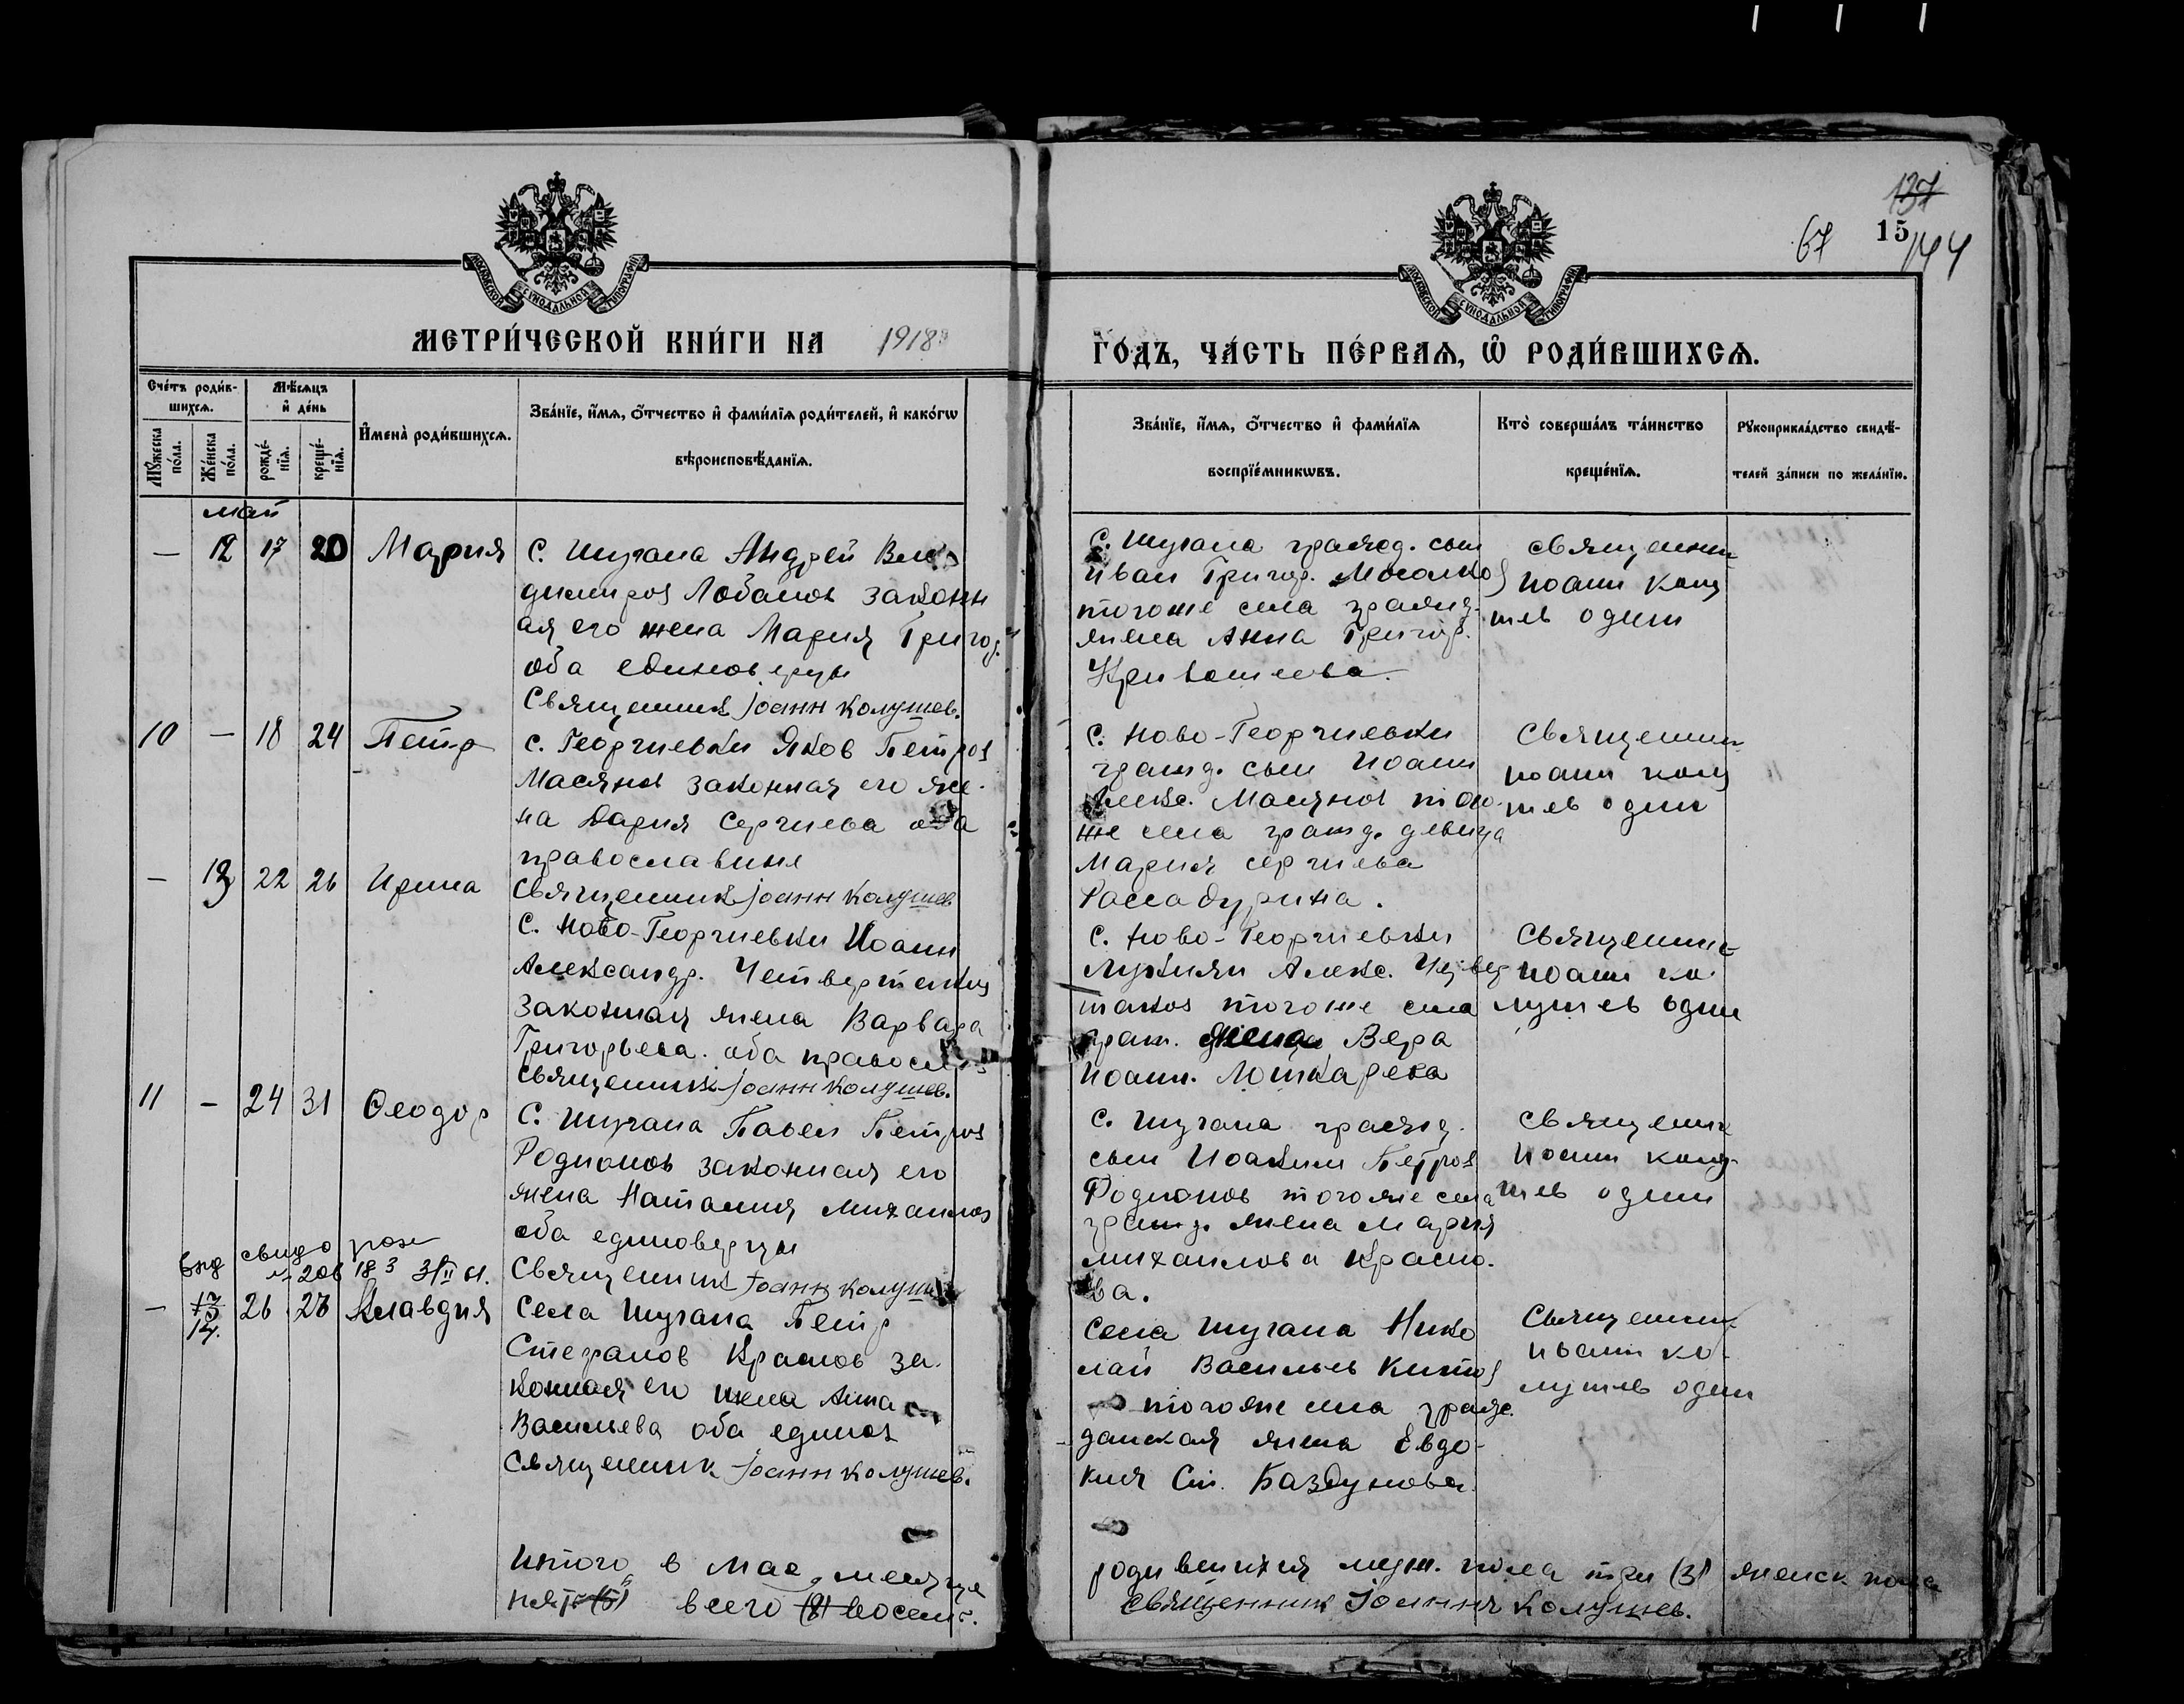 137
67 15 144
МОСКОВСКОЙ СѴНОДАЛЬНОЙ ТИПОГРАФІИ
МОСКОВСКОЙ СѴНОДАЛЬНОЙ ТИПОГРАФІИ
МЕТРИ́ЧЕСКОЙ КНИ́ГИ НА 1918
ГО́ДЪ, ЧА́СТЬ ПЕ́РВАѦ, Ѡ҆ РОДИ́ВШИХСѦ.
Сче́тъ роди́в-
шихсѧ.
Мꙋ́жеска
по́ла.
Же́нска
по́ла.
Мѣ́сѧцъ
и҆ де́нь
рожде́-
нїѧ.
креще́-
нїѧ.
И҆мена̀ роди́вшихсѧ.
Зва́нїе, и҆́мѧ, ѻ҆́тчество и҆ фами́лїѧ роди́телей, и҆ како́гѡ
вѣроисповѣ́данїѧ.
Зва́нїе, и҆́мѧ, ѻ҆́тчество и҆ фами́лїѧ
воспрїе́мникѡвъ.
Кто̀ соверша́лъ та́инство
креще́нїѧ.
Рꙋкоприкла́дство свидѣ́-
телей за́писи по жела́нїю.
май
— 12 17 20 Мария
с. Шугана Андрей Вла
димиров Лобанов законн
ая его жена Мария Григор.
оба единоверцы
Священник Іоанн Колушев.
с. Шугана гражд. сын
Иван Григор.
тогоже села гражд.
жена Анна Григор.
Кривошеева.
священник
Иоанн Колу
шев один
10 — 18 24 Петр
с. Георгиевки Яков Петров
Масянов законная его же-
на Дария Сергиева оба
православные
священник Іоанн Колушев
с. Ново-Георгиевки
гражд. сын Иоанн
Алекс. Масянов того
же села гражд. девица
Мария Сергиева
Рассадурина.
Священник
Иоанн Колу
шев один
— 13 22 26 Ирина
с. Ново-Георгиевки Иоанн
Александр.
законная жена Варвара
Григорьева. оба правосл
священник Іоанн Колушев.
с. Ново-Георгиевки
Лукиян Алекс.
тогоже села
граж. Вера
Иоанн. Лошкарева
Священник
Иоанн Ко-
лушев один
11 — 24 31 Ѳеодор
с. Шугана Павел Петров
Родионов законная его
жена Наталия Михаилов
оба единоверцы
Священник Іоанн Колушев
с. Шугана гражд.
сын Иоаким Петров
Родионов тогоже села
гражд. жена Мария
Михаилова Красно-
ва.
Священник
Иоанн Колу-
шев один
свидо рож
206 18 3 61.
— 13 14. 26 28 Клавдия
Села Шугана Петр
Стефанов Краснов за-
конная его жена Анна
Васильева оба единов
Священник Іоанн Колушев.
Села Шугана Нико
лай Васильев Китов
тогоже села граж-
данская жена Евдо-
кия Ст. Баздунова.
Священник
Иоанн Ко-
лушев один
Итого в Мае месяце
родившихся муж. пола три (3) женск. пола
пять (5) всего (8) восемь.
Священник Іоанн Колушев.